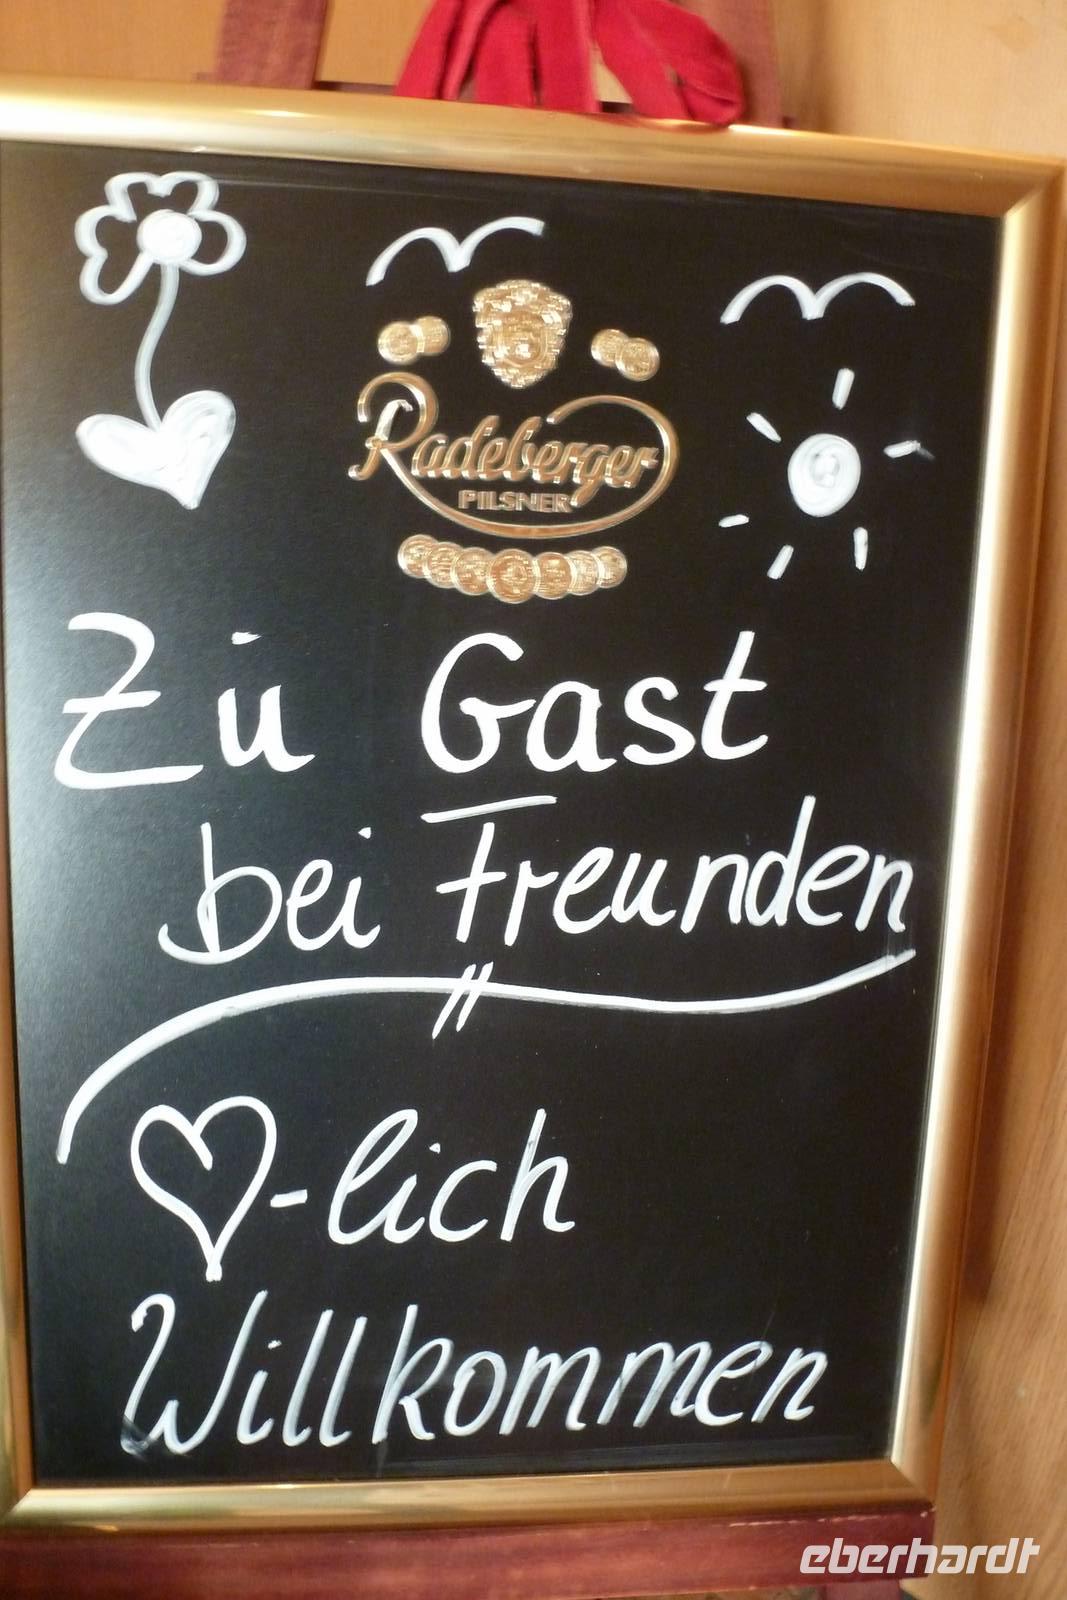 Radeberger
PILSNER
Zu Gast
bei Freunden
♡-lich
Willkommen
eberhardt